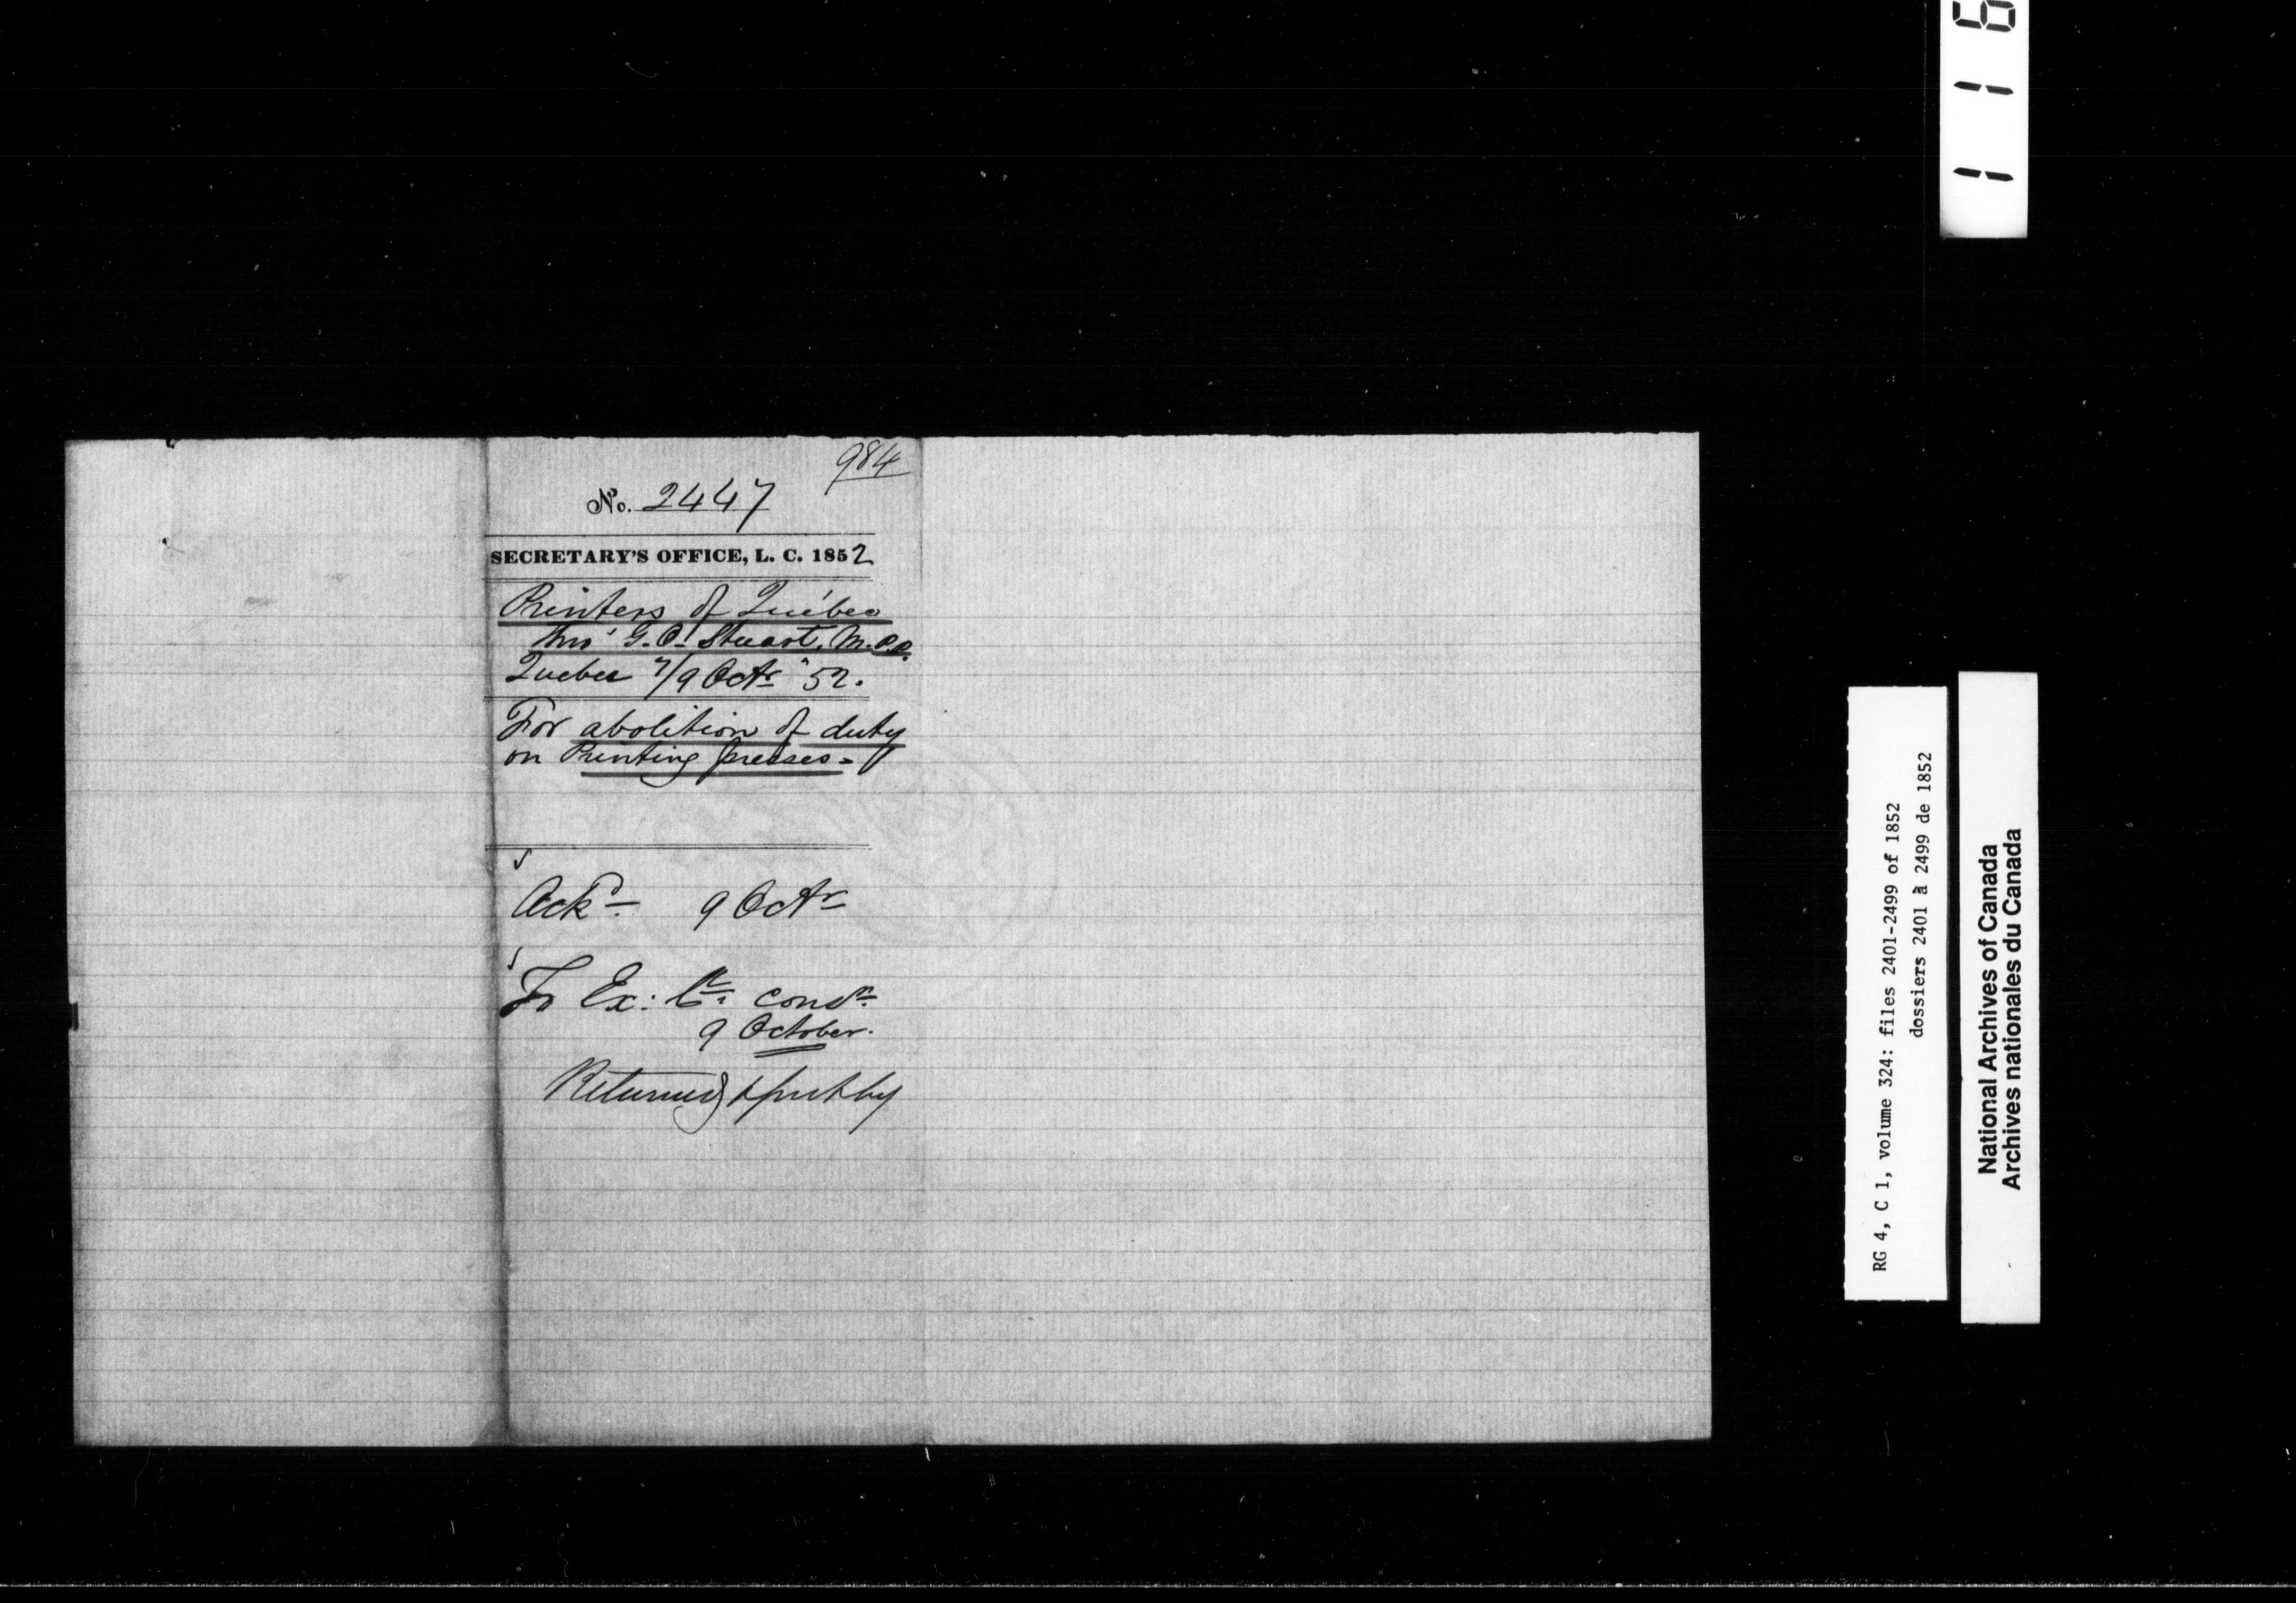 984
No. 2447
SECRETARY'S OFFICE, L. C. 1852
Printers of Québec
thro' G. O. Stuart, M.P.P.
Quebec 7/9 Octr 52.
For abolition of duty
on Printing presses -
Ackd 9 Octr
To Ex: Cn: consn
9 October.
Returned & put by
116
RG 4, C 1, volume 324: files 2401-2499 of 1852
dossiers 2401 à 2499 de 1852
National Archives of Canada
Archives nationales du Canada